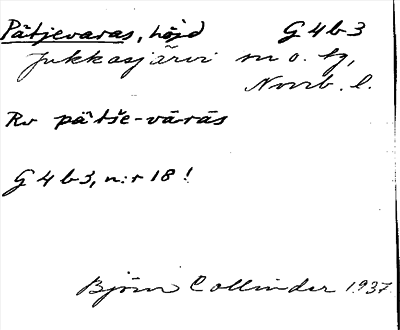 Pätjevaras, höjd G 4 b 3
Jukkasjärvi sn o. tg,
Norrb. l.
Rv pätše-vārās
G 4 b 3, n:r 18!
Björn Collinder 1937.